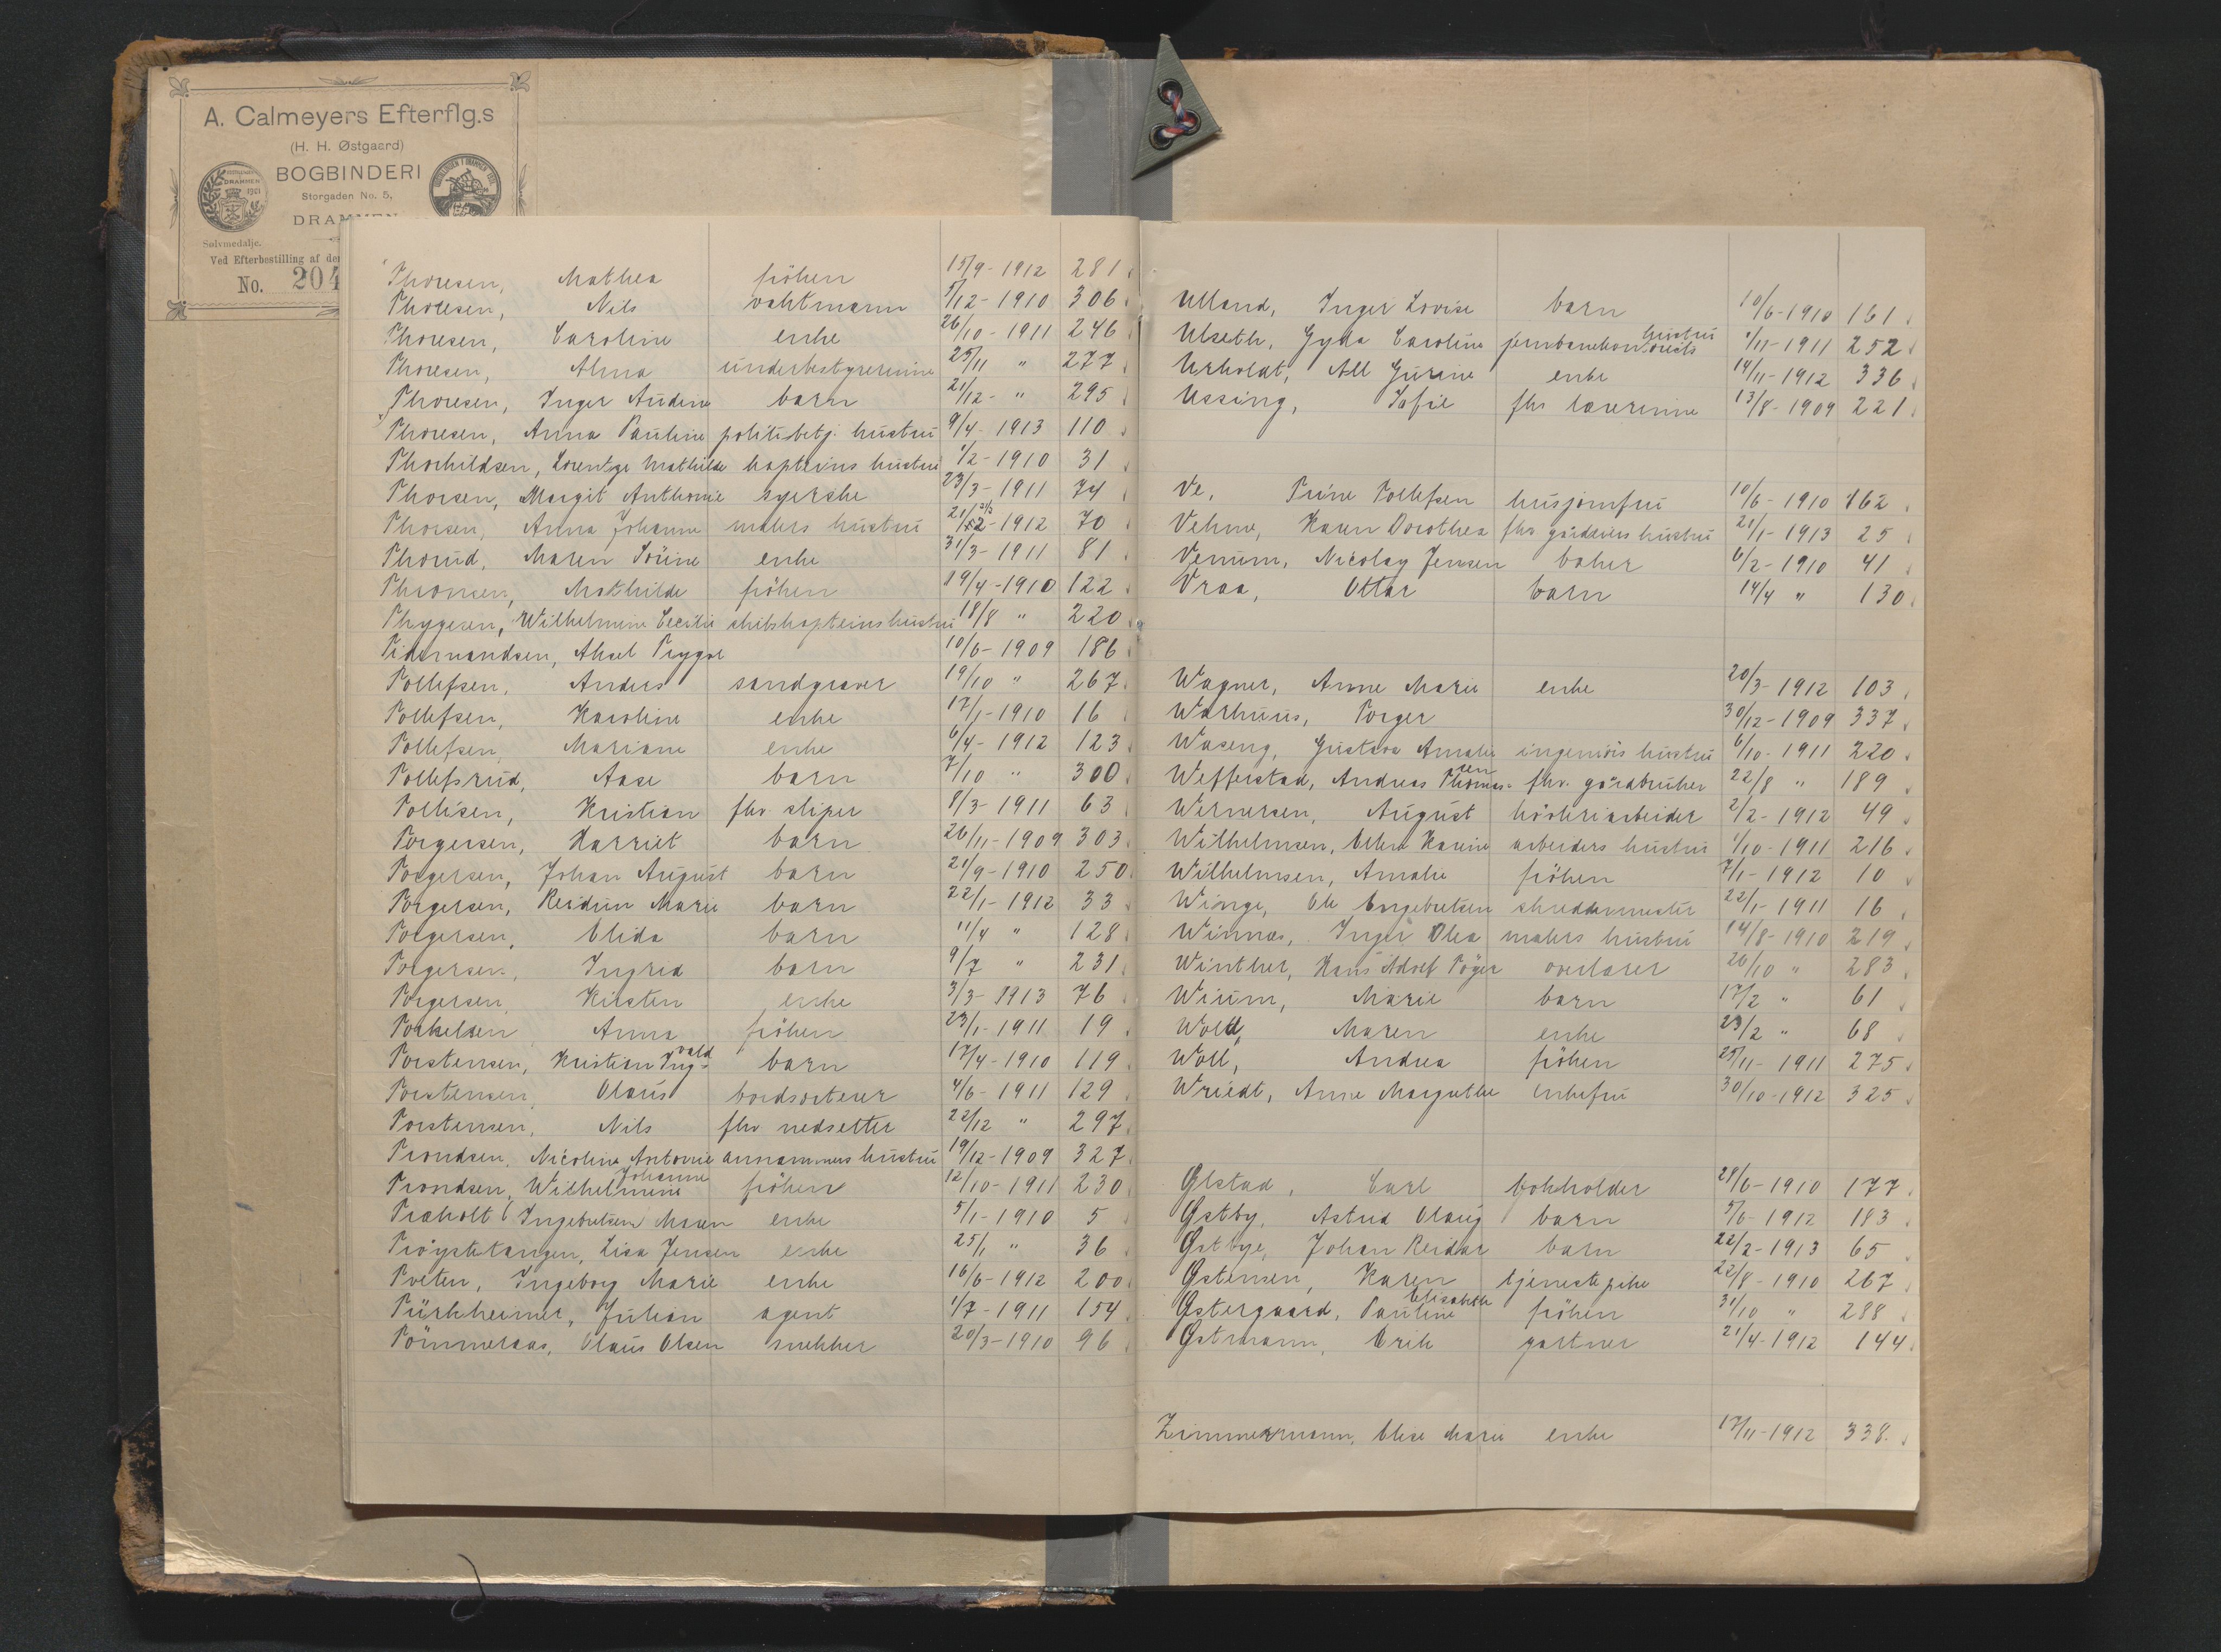 A. Calmeyers Efterflg.s
(H. H. Østgaard)
BOGBINDERI
DRAMMEN 1901
Storgaden No. 5,
Sølvmedalje.
Ved Efterbestilling af
No. 204
Thoresen, Mathea fröken 15/9-1912 281
Thoresen, Nils vaktmann 5/12-1910 306
Thoresen, Caroline enke 26/10-1911 246
Thoresen, Alma underbestyrerinne 25/11 " 277
Thoresen, Inger Audene barn 21/12- " 295
Thoresen, Anna Pauline politibetj. hustru 9/4-1913 110
Thorkildsen, Lorentze Mathilde kapteins hustru 1/2-1910 31
Thorsen, Margit Anthonie syerske 23/3-1911 74
Thorsen, Anna Johanne malers hustru 1912 70
Thorud, Maren Sörine enke 31/3-1911 81
Thronsen, Mathilde fröken 19/4-1910 122
Thygesen, Wilhelmine Cecilie skibskapteins hustru 18/8 " 220
Tidemandsen, Aksel Trygve 10/6-1909 186
Tollefsen, Anders sandgraver 19/10 " 267
Tollefsen, Karoline enke 17/1-1910 16
Tollefsen, Mariane enke 6/4-1912 123
Tollefsrud, Aase barn 7/10 " 300
Tollisen, Kristian fhv. sliper 8/3-1911 63
Torgersen, Harriet barn 26/11-1909 303
Torgersen, Johan August barn 21/9-1910 250
Torgersen, Reidun Marie barn 22/1-1912 33
Torgersen, Elida barn 11/4 " 128
Torgersen, Ingrid barn 9/7 " 231
Torgersen, Kirsten enke 3/3-1913 76
Torkelsen Anna fröken 23/1-1911 19
Torstensen, Kristian Ing-vald barn 17/4-1910 119
Torstensen, Olaus bordsorterer 4/6-1911 129
Torstensen, Nils fhv nedsetter 22/12 " 297
Trondsen, Nicoline Antonie annammers hustru 19/12-1909 327
Trondsen, Wilhelmine Johanne fröken 12/10-1911 230
Træholt, Ingebretsen Maren enke 5/1-1910 5
Tröystetangen, Lisa Jensen enke 25/1 " 36
Tveten, Ingeborg Marie enke 16/6-1912 200
Türkheimer, Julian agent 1/7-1911 154
Tömmeraas, Olaus Olsen snekker 20/3-1910 96
Ulland, Inger Lovise barn 10/6-1910 161
Ulseth, Gyda Caroline hustru 1/11-1911 252
Urholdt, All Gurine enke 14/11-1912 336
Ussing, Sofie fhv lærerinne 13/8-1909 221
Ve, Trine Tollefsen husjomfru 10/6-1910 162
Vehne, Karen Dorothea fhv gårdeiers hustru 21/1-1913 25
Venum, Nicolay Jensen baker 6/2-1910 41
Vraa, Ottar barn 14/4 " 130
Wagner, Anne Marie enke 20/3-1912 103
Warhuus, Torger 30/12-1909 337
Waseng, Gustava Amalie ingeniörs hustru 6/10-1911 220
Wefferstad, Andreas Thomas-sen fhv. gårdbruker 22/8 " 189
Wernersen, August hövleriarbeider 2/2-1912 49
Wilhelmsen, Ellen Karine arbeiders hustru 1/10-1911 216
Wilhelmsen, Amalie fröken 7/1-1912 10
Winge, Ole Engebretsen skreddermester 22/1-1911 16
Winnæs, Inger Olea malers hustru 14/8-1910 219
Winther, Hans Adolf Töger overlærer 26/10 " 283
Wium, Marie barn 17/2 " 61
Wold, Maren enke 23/2 " 68
Woll, Andrea fröken 25/11-1911 275
Wriedt, Anne Margrethe enkefru 30/10-1912 325
Østad, Carl bokholder 28/6-1910 177
Østby, Astrid Olaug barn 5/6-1912 183
Østbye, Johan Reidar barn 22/2-1913 65
Østensen, Karen tjenestepike 22/8-1910 267
Østergaard, Pauline Elisabeth fröken 31/10 " 288
Østmann, Erik gartner 21/4-1912 144
Zimmermann, Elise Marie enke 17/11-1912 338